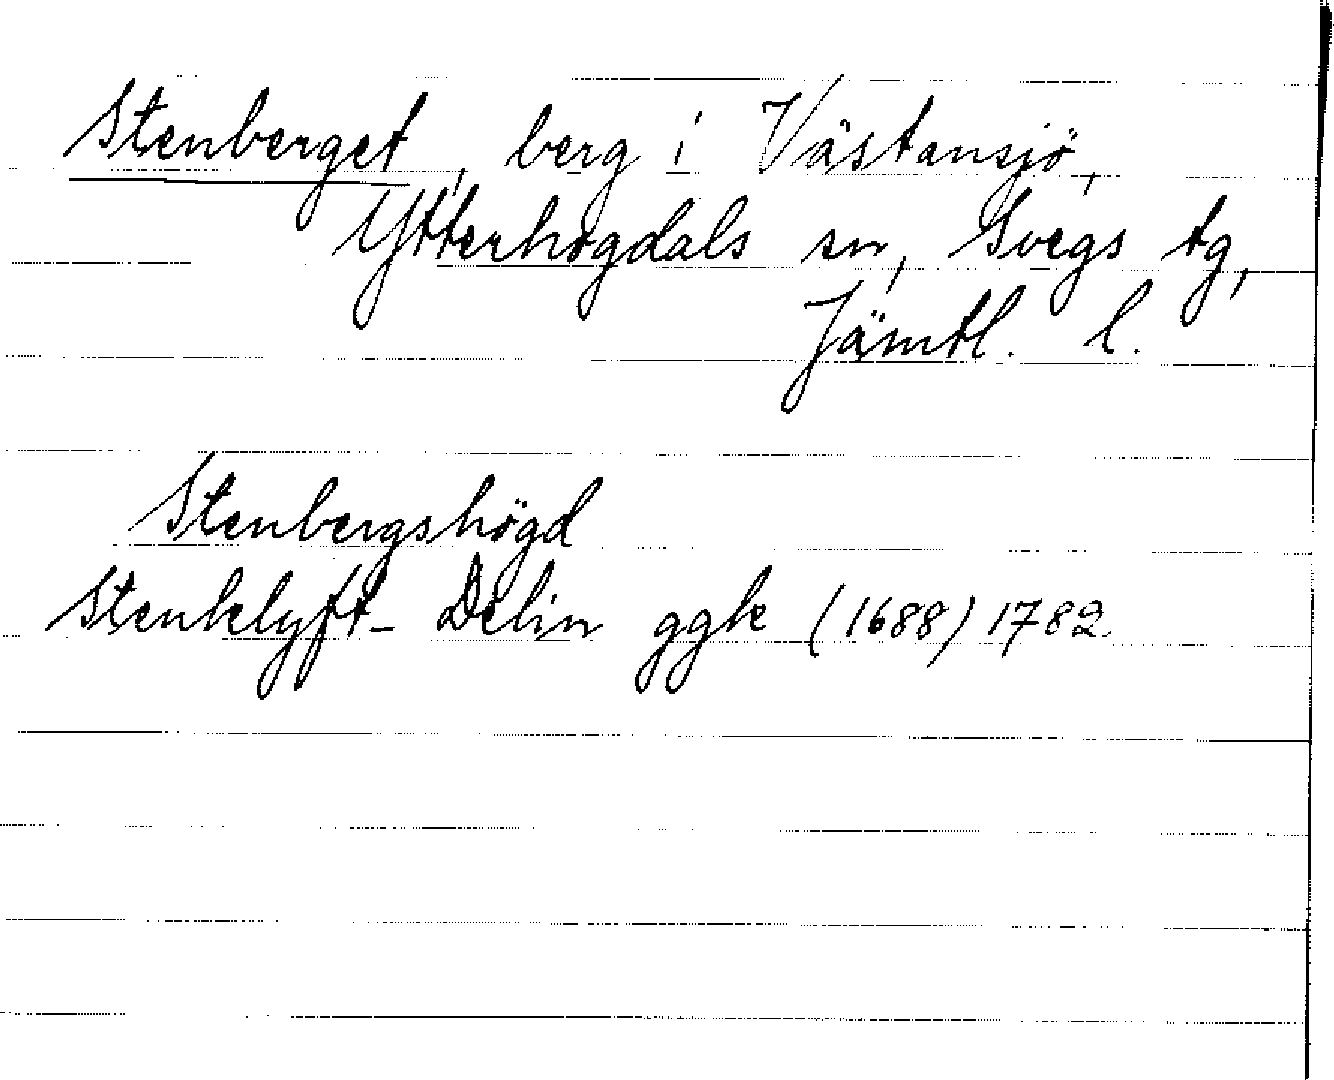 Stenberget, berg i Västansjö,
Ytterhogdals sn, Svegs tg,
Jämtl. l.
Stenbergshögd
Stenklyft- Delin ggk (1688) 1782.